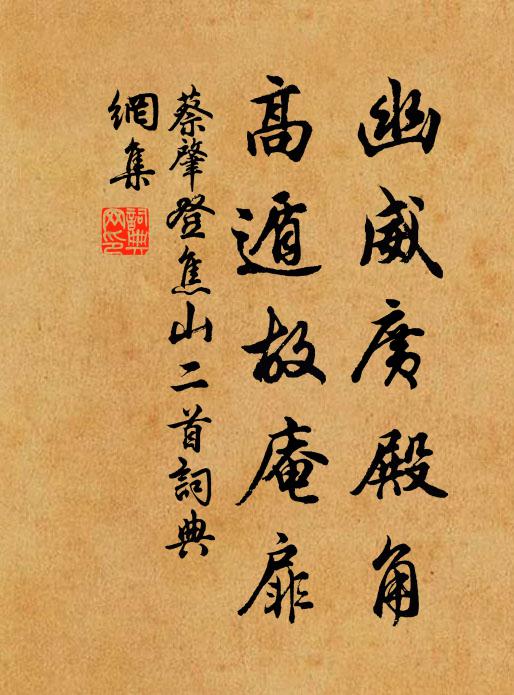 幽威廣殿角
高遁故庵扉
蔡肇登焦山二首詞典
網集
詞典
网印